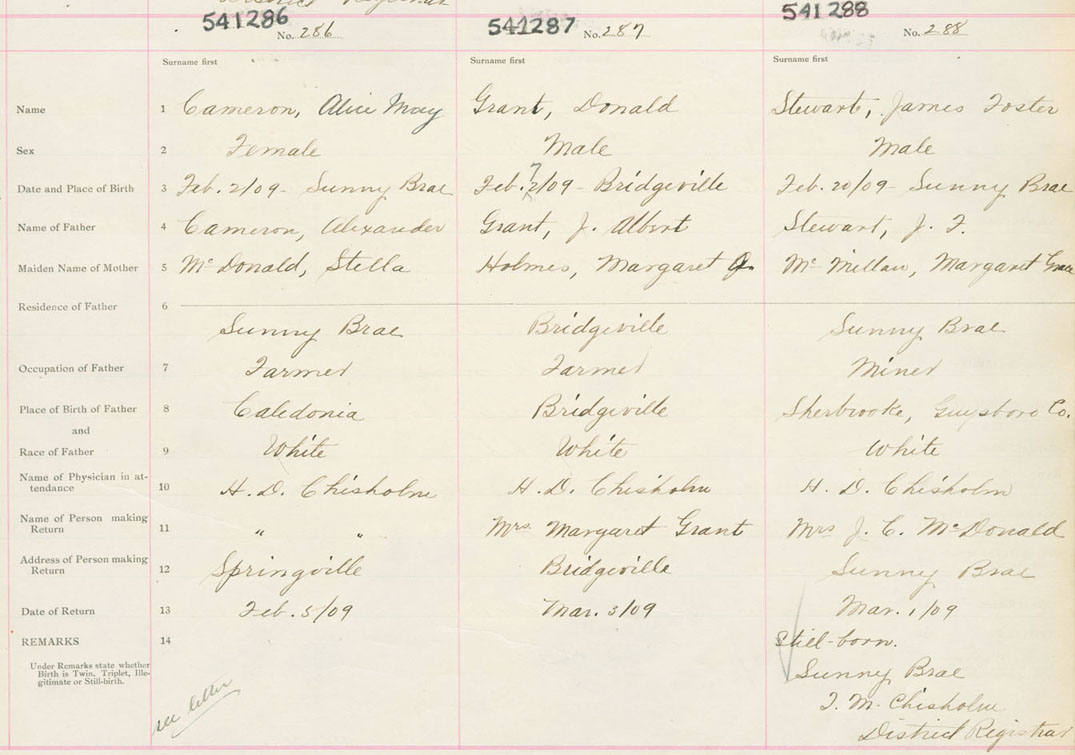 District Registrar
541286 No. 286 541287 No. 287 541288 No. 288
Surname first Surname first Surname first
Name 1 Cameron, Alice May Grant, Donald Stewart, James Foster
Sex 2 Female Male Male
Date and Place of Birth 3 Feb. 2/09- Sunny Brae Feb. 2/09- Bridgeville Feb. 20/09- Sunny Brae
Name of Father 4 Cameron, Alexander Grant, J. Albert Stewart, J. F.
Maiden Name of Mother 5 McDonald, Stella Holmes, Margaret J. McMillan, Margaret Grace
Residence of Father 6
Sunny Brae Bridgeville Sunny Brae
Occupation of Father 7 Farmer Farmer Miner
Place of Birth of Father 8 Caledonia Bridgeville Sherbrooke, Guysboro Co.
and
Race of Father 9 White White White
Name of Physician in at-
tendance 10 H. D. Chisholm H. D. Chisholm H. D. Chisholm
Name of Person making
Return 11 " " Mrs. Margaret Grant Mrs J. C. McDonald
Address of Person making
Return 12 Springville Bridgeville Sunny Brae
Date of Return 13 Feb. 5/09 Mar. 3/09 Mar. 1/09
REMARKS 14 Still-born.
Under Remarks state whether
Birth is Twin, Triplet, Ille-
gitimate or Still-birth.
Sunny Brae
T. M. Chisholm
District Registrar
see letter